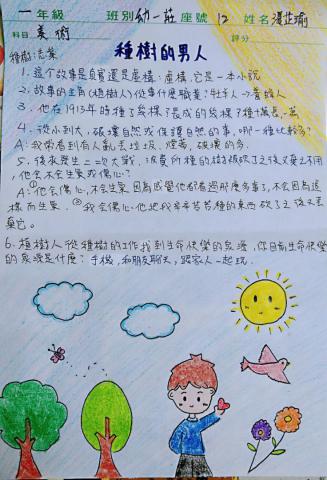 一年級 班別幼一莊座號12 姓名湯芷瑜
科目 美術 評分
種樹的男人
種樹志業
1. 這個故事是真實還是虛構:虛構,它是一本小說
2. 故事的主角(植樹人)從事什麼職業?牡羊人→養蜂人
3. 他在1913年時種了幾棵?長成的幾棵?種十萬長一萬
4. 從小到大,破壞自然或保護自然的事,哪一種比較多?
A:我常看到有人亂丟垃圾、煙蒂,破壞的多.
5. 後來發生二次大戰,浪費所種的樹被砍了之後又棄之不用,
他會不會生氣或傷心?
A:①他會傷心,不會生氣 因為感覺他都看過那麼多事了,不會因為這
樣而生氣. ②我會傷心,他把我辛辛苦苦種的東西砍了之後又丟
棄它。
6. 種樹人從種樹的工作找到生命快樂的泉源,你目前生命快樂
的泉源是什麼?手機,和朋友聊天,跟家人一起玩.